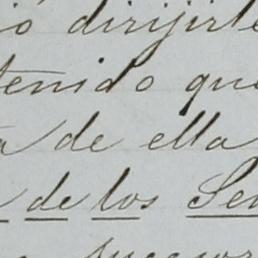 ió dirijirle
tenido que
a de ella
de los Señ